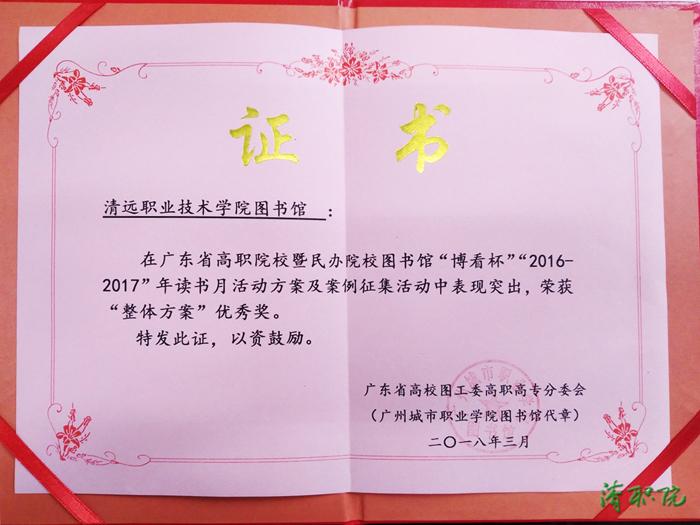 证书
清远职业技术学院图书馆：
在广东省高职院校暨民办院校图书馆“博看杯”“2016-
2017”年读书月活动方案及案例征集活动中表现突出，荣获
“整体方案”优秀奖。
特发此证，以资鼓励。
广东省高校图工委高职高专分委会
（广州城市职业学院图书馆代章）
二〇一八年三月
清职院